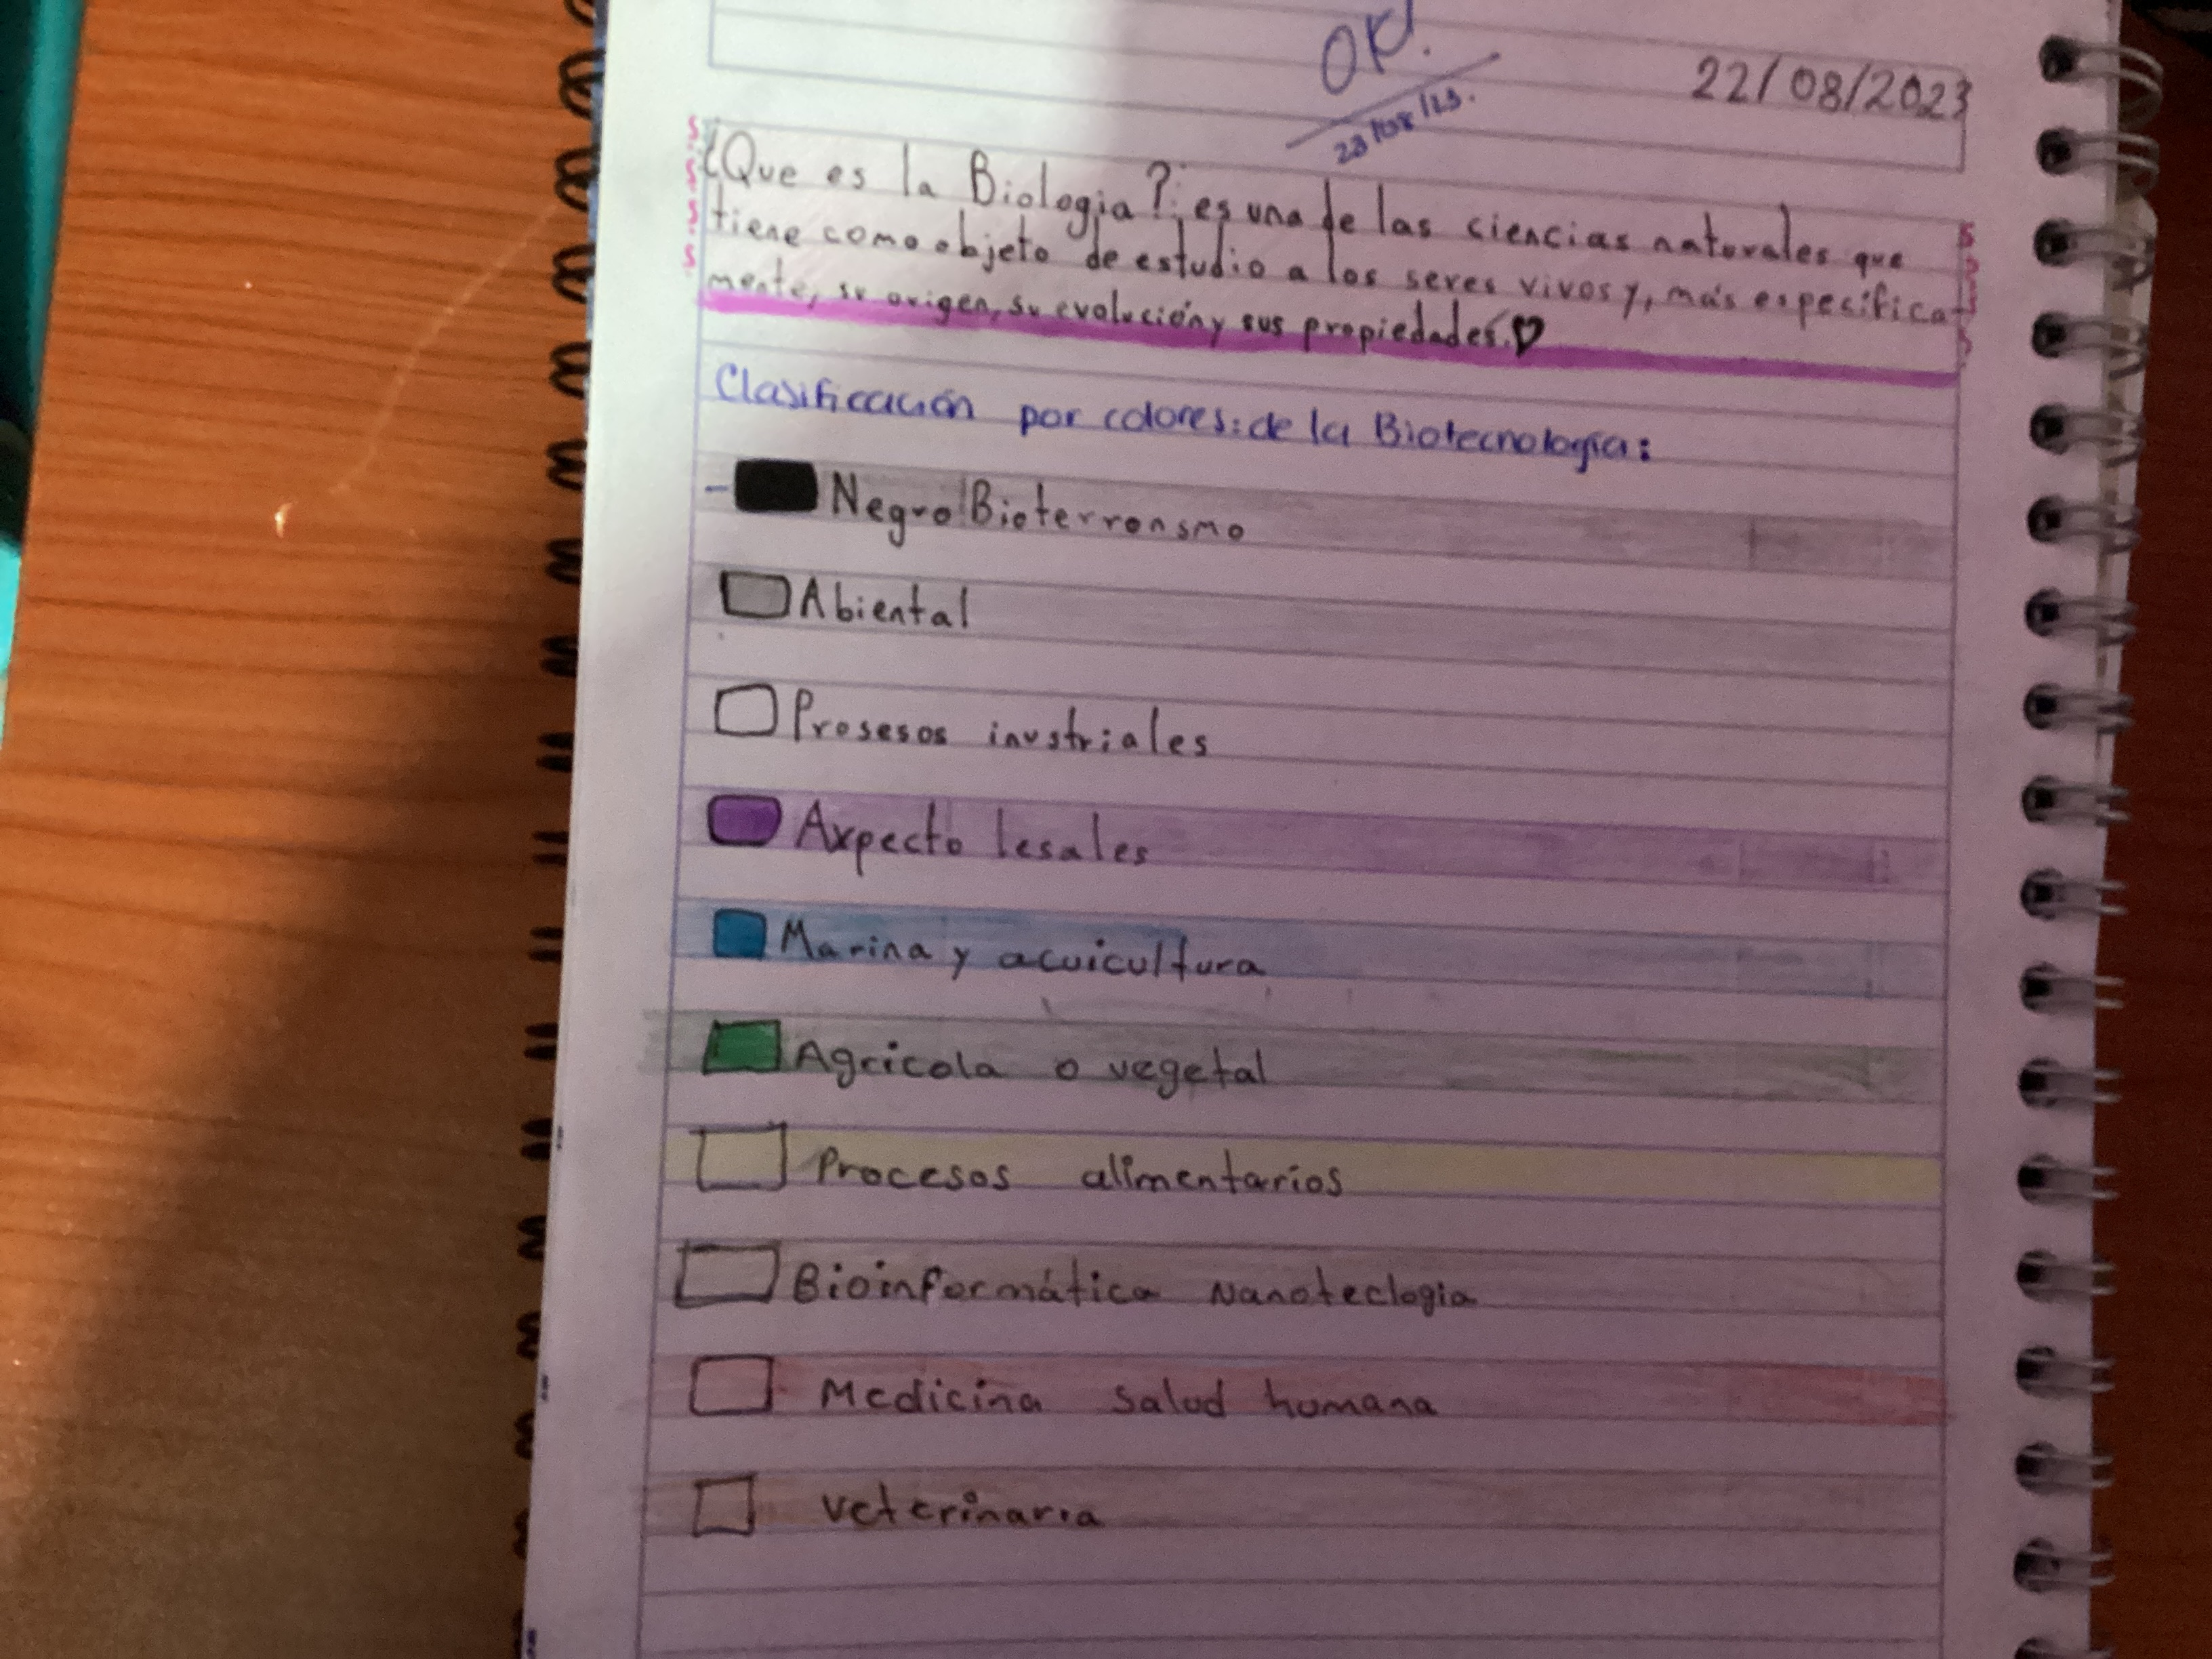 OK!
22/08/2023
23/08/23.
¿Que es la Biologia?: es una de las ciencias naturales que
tiene como objeto de estudio a los seres vivos y, más especifica-
mente, su origen, su evolución y sus propiedades.♡
Clasificación por colores: de la Biotecnología:
- Negro Bioterrorismo
Abiental
Prosesos invstriales
Axpecto lesales
Marina y acuicultura
Agricola o vegetal
Procesos alimentarios
Bioinformática Nanoteclogia
Medicina Salud humana
veterinaria